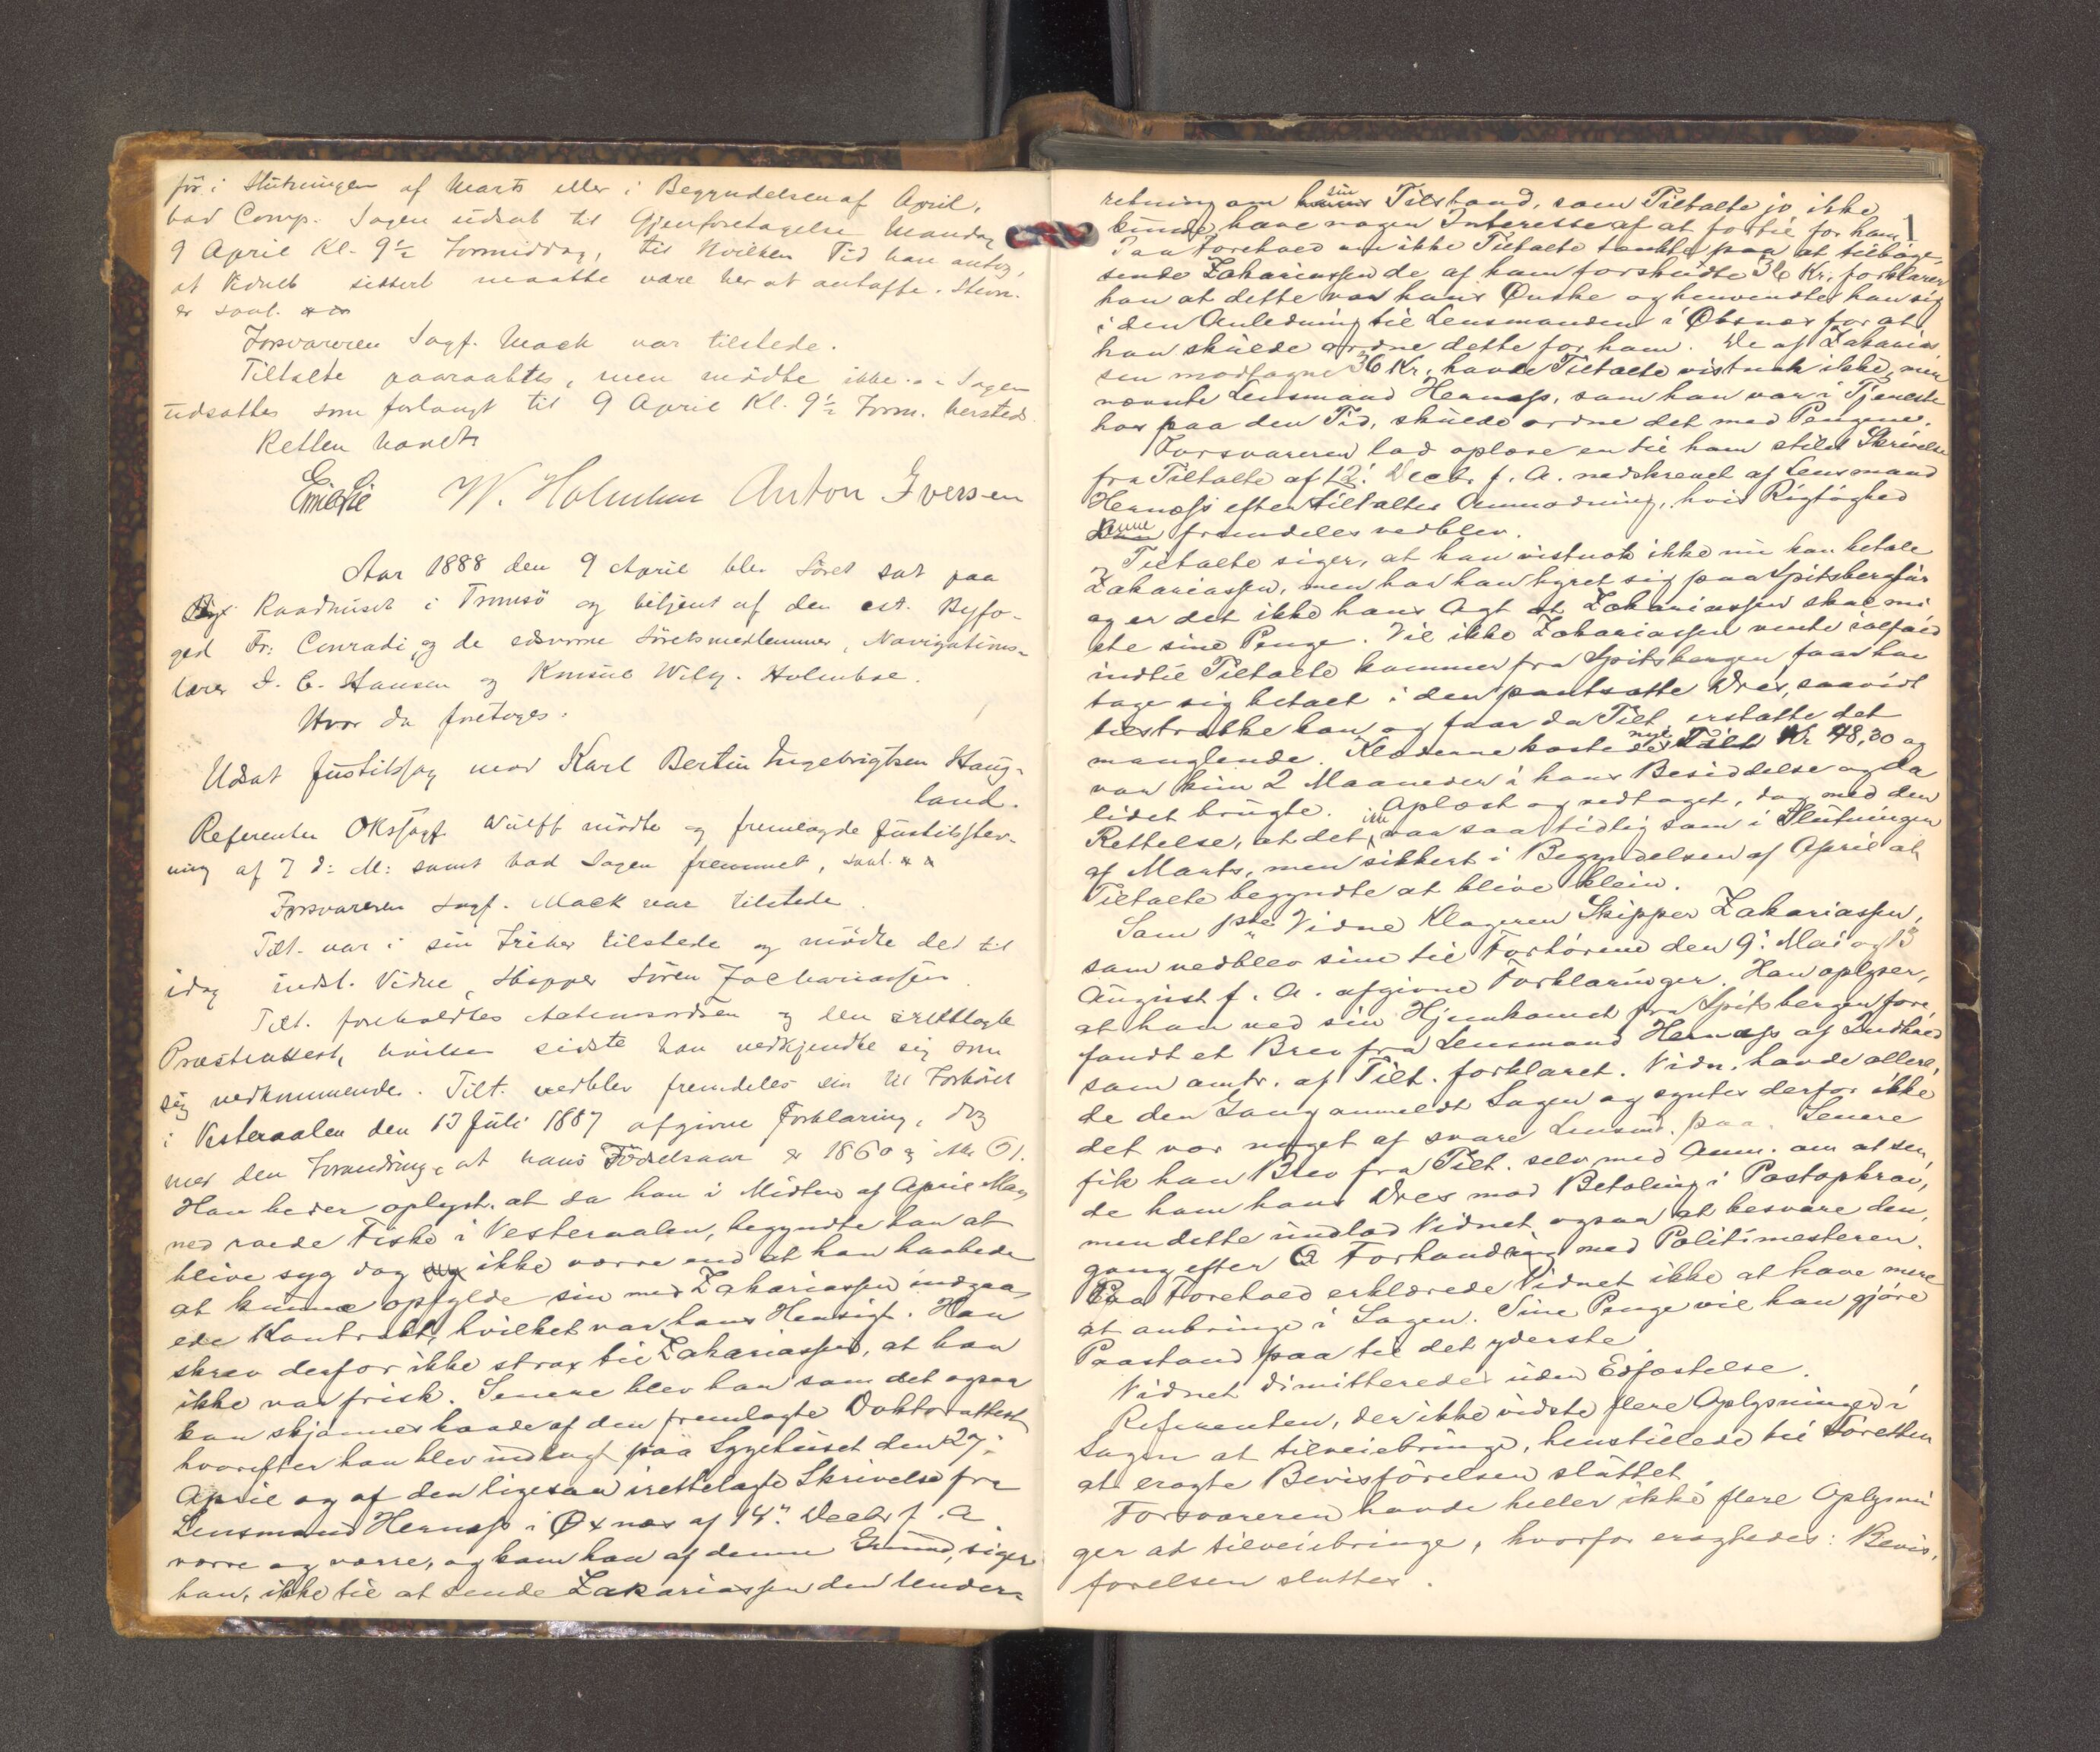 för i Slutningen af Marts eller i Begyndelsen af April,
bad Comp. Sagen udsat til Gjenforetagelse Mandag
9 April Kl. 9½ Formiddag, til hvilken Tid han antog,
at Vidnet sikkert maatte være her at antræffe. Stevn.
er saal.
Forsvareren Sagf. Mack var tilstede.
Tiltalte paaraabtes, men mödte ikke. Sagen
udsattes som forlangt til 9 April Kl. 9½ Form. hersteds
Retten hævet
W. Holmboe Anton Iversen
Aar 1888 den 9 April blev Söret sat paa
Raadhuset i Tromsö og betjent af den cst. Byfo-
ged Fr: Conradi og de edsvorne Söretsmedlemmer, Navigations-
lærer J. C. Hansen og Konsul Wilh. Holmboe.
Hvor da foretoges:
Udsat Justitssag mod Karl Bertin Ingebrigtsen Haug-
land.
Referenten ORSsagf. Wulff mödte og fremlagde Justitsstev-
ning af 7 d: M: samt bad Sagen fremmet, saal.
Forsvareren Sagf. Mack var tilstede.
Tilt. var i sin Frihed tilstede og mödte det til
idag indst. Vidne, Skipper Sören Zachariassen
Tilt. foreholdtes Aatensordren og den irettelagte
Præsteattest, hvilken sidste han vedkjendte sig som
sig vedkommende. Tilt. vedblev fremdeles sin til Forhöret
i Vesteraalen den 13 Juli 1887 afgivne Forklaring, dog
med den Forandring, at hans Födselsaar er 1860 og ikke 61.
Han beder oplyst, at da han i Midten af April Maaned
roede Fiske i Vesteraalen, begyndte han at
blive syg dog ikke værre end at han haabede
at kunne opfylde sin med Zakariassen indgaa-
ede Kontrakt, hvilket var hans Hensigt. Han
skrev derfor ikke strax til Zakariassen, at han
ikke var frisk. Senere blev han som det ogsaa
kan skjönnes baade af den fremlagte Doktorattest
hvorefter han blev indlagt paa Sygehuset den 27:
April og af den ligesaa irettelagte Skrivelse fra
Lensmand Hernæss i Øxnes af 14: Decbr f. A
værre og værre, og kom han af denne Grund, siger
han, ikke til at sende Zakariassen den Under-
retning om sin Tilstand, som Tiltalte jo ikke
kunde have nogen Interesse af at fortie for ham
Paa Forehold om ikke Tiltalte tænkte paa at tilbage-
sende Zakariassen de af ham forskudte 36 Kr., forklarer
han at dette var hans Ønske og henvendte han sig
i den Anledning til Lensmanden i Øksnes for at
han skulde ordne dette for ham. De af Zakarias-
sen modtagne 36 Kr. havde Tiltalte vistnok ikke, men
nævnte Lensmand Hernæss, som han var i Tjeneste
hos paa den Tid, skulde ordne det med Pengene.
Forsvareren lod oplæse en til ham stilet Skrivelse
fra Tiltalte af 12: Decbr. f. A. nedskrevet af Lensmand
Hernæss efter tiltaltes Anmodning, hvis Rigtighed
denne fremdeles vedblev.
Tiltalte siger, at han vistnok ikke nu kan betale
Zakariassen, men har han hyret sig paa Spitsbergtur
og er det ikke hans Agt at Zakariassen skal mi-
ste sine Penge. Vil ikke Zakariassen vente ialfald
indtil Tiltalte kommer fra Spitsbergen faar han
tage sig betalt i den pantsatte Dres, saavidt
tilstrække kan og faar da Tilt. erstatte det
manglende. Klæderne kostede nye Kr 48,30 og
var kun 2 Maaneder i hans Besiddelse og da
lidet brugte. Oplæst og vedtaget, dog med den
Rettelse, at det ikke var saa tidlig som i Slutningen
af Marts, men sikkert i Begyndelsen af April at
Tiltalte begyndte at blive klein.
Som 1ste Vidne Klageren Skipper Zakariassen,
som vedblev sine til Forhörene den 9: Mai og 13
August f. A. afgivne Forklaringer. Han oplyser,
at han ved sin Hjemkomst fra Spitsbergen fore-
fandt et Brev fra Lensmand Hernæss af Indhold
som omtr. af Tilt. forklaret. Vidn. havde allere-
de den Gang anmeldt Sagen og syntes derfor ikke
det var noget at svare Lensm. paa. Senere
fik han Brev fra Tilt. selv med Anm. om at sen-
de ham hans Dres mod Betaling i Postopkrav,
men dette undlod Vidnet ogsaa at besvare den-
gang efter Forhandling med Politimesteren.
Paa Forehold erklærede Vidnet ikke at have mere
at anbringe i Sagen. Sine Penge vil han gjöre
Paastand paa til det yderste.
Vidnet dimitteredes uden Edfæstelse.
Referenten, der ikke vidste flere Oplysninger i
Sagen at tilveiebringe, henstillede til Söretten
at eragte Bevisförelsen sluttet.
Forsvareren havde heller ikke flere Oplysnin-
ger at tilveiebringe, hvorfor eragtedes: Bevis-
förelsen sluttes.